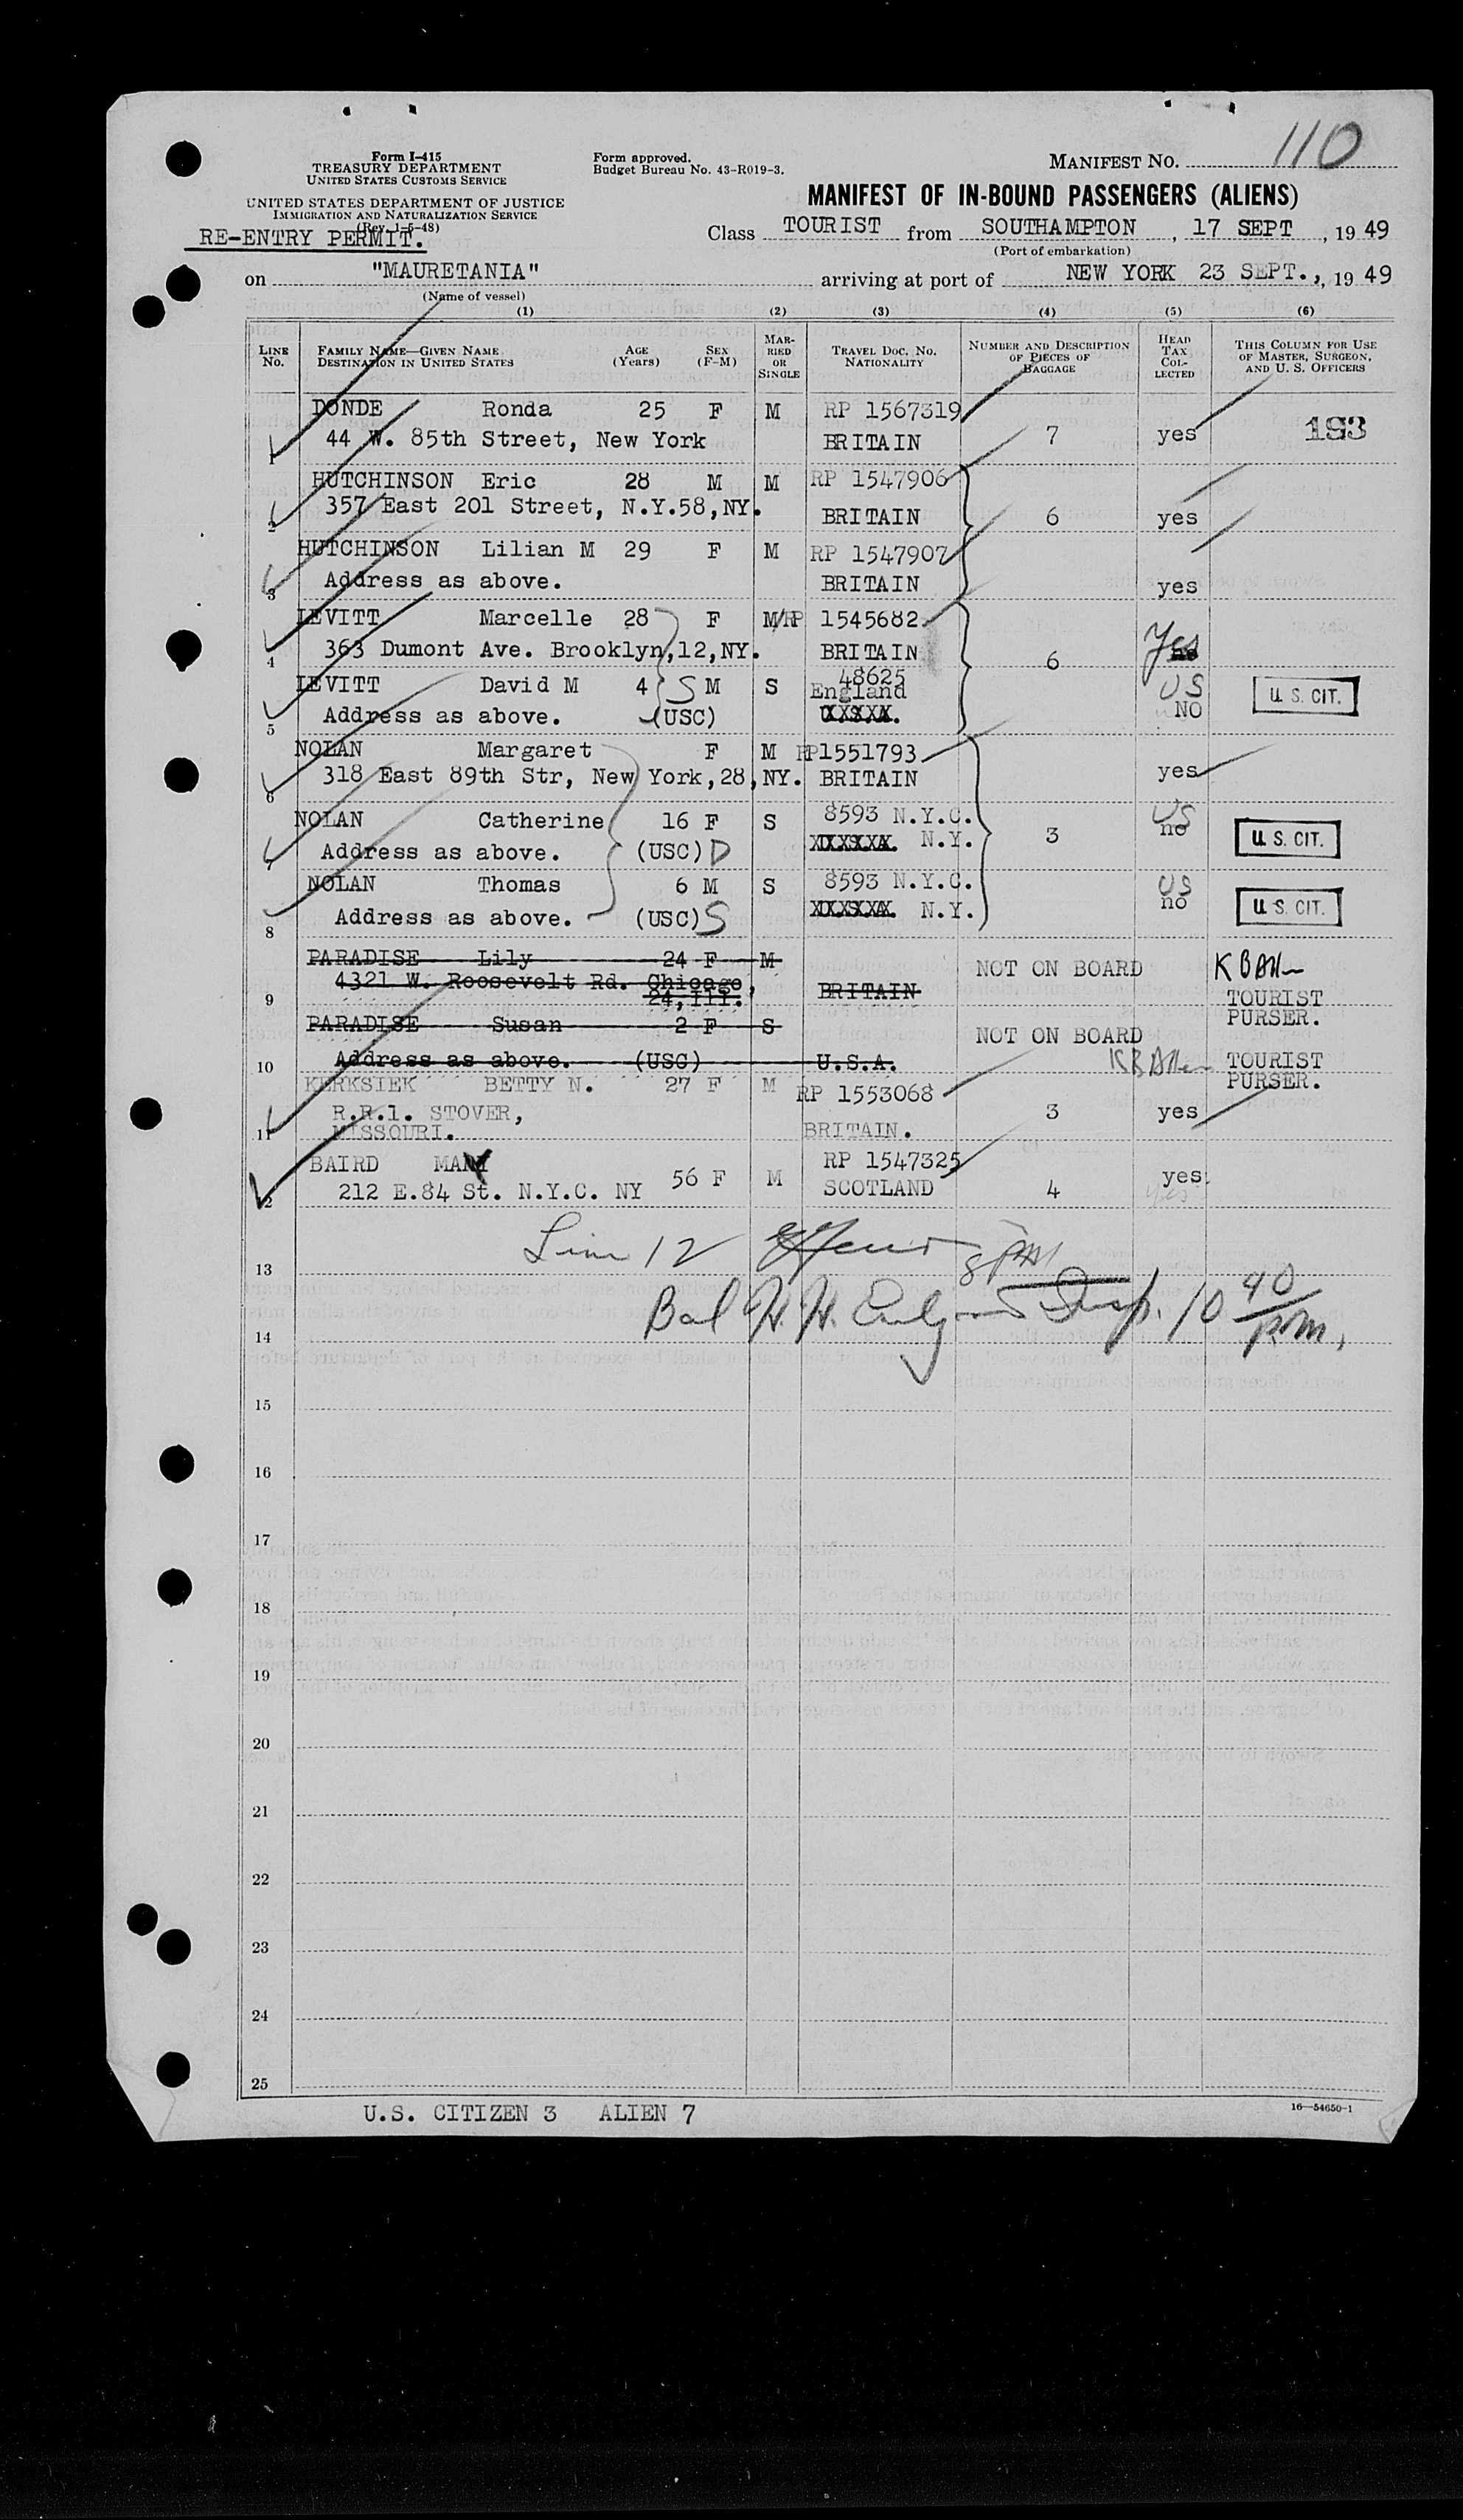 110
Form I-415
TREASURY DEPARTMENT
UNITED STATES CUSTOMS SERVICE
UNITED STATES DEPARTMENT OF JUSTICE
IMMIGRATION AND NATURALIZATION SERVICE
(Rev. 1-5-48)
RE-ENTRY PERMIT.
Form approved.
Budget Bureau No. 43-R019-3.
MANIFEST NO.
MANIFEST OF IN-BOUND PASSENGERS (ALIENS)
Class TOURIST from SOUTHAMPTON, 17 SEPT, 19 49
(Port of embarkation)
on "MAURETANIA" arriving at port of NEW YORK 23 SEPT., 19 49
(Name of vessel)
(1) (2) (3) (4) (5) (6)
LINE No. FAMILY NAME—GIVEN NAME DESTINATION IN UNITED STATES AGE (Years) SEX (F-M) MARRIED OR SINGLE TRAVEL DOC. NO. NATIONALITY NUMBER AND DESCRIPTION OF PIECES OF BAGGAGE HEAD TAX COLLECTED THIS COLUMN FOR USE OF MASTER, SURGEON, AND U. S. OFFICERS
DONDE Ronda 25 F M RP 1567319
1 44 W. 85th Street, New York BRITAIN 7 yes 193
HUTCHINSON Eric 28 M M RP 1547906
2 357 East 201 Street, N.Y.58,NY. BRITAIN 6 yes
HUTCHINSON Lilian M 29 F M RP 1547907
3 Address as above. BRITAIN yes
LEVITT Marcelle 28 F M RP 1545682
4 363 Dumont Ave. Brooklyn,12,NY. BRITAIN 6 Yes
LEVITT David M 4 S M S 48625 England US U. S. CIT.
5 Address as above. (USC) NO
NOLAN Margaret F M RP1551793
6 318 East 89th Str, New York,28,NY. BRITAIN yes
NOLAN Catherine 16 F S 8593 N.Y.C. US
7 Address as above. (USC) D N.Y. 3 no U. S. CIT.
NOLAN Thomas 6 M S 8593 N.Y.C. US
8 Address as above. (USC) S N.Y. no U. S. CIT.
PARADISE Lily 24 F M NOT ON BOARD
9 4321 W. Roosevelt Rd. Chicago, 24, Ill. BRITAIN TOURIST PURSER.
PARADISE Susan 2 F S NOT ON BOARD
10 Address as above. (USC) U.S.A. TOURIST PURSER.
KERKSIEK BETTY N. 27 F M RP 1553068
11 R.R.1. STOVER, MISSOURI. BRITAIN. 3 yes
BAIRD MARY 56 F M RP 1547325
12 212 E.84 St. N.Y.C. NY SCOTLAND 4 yes
Line 12 8 PM
13
Bal H. H. Insp. 10 40/p.m.
14
15
16
17
18
19
20
21
22
23
24
25
U.S. CITIZEN 3 ALIEN 7
16—54650-1